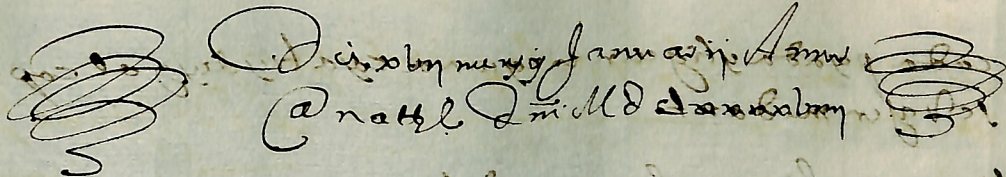 Die xvii mensis Januarii Anno
a natt.e Dni M d Lxxxxviii